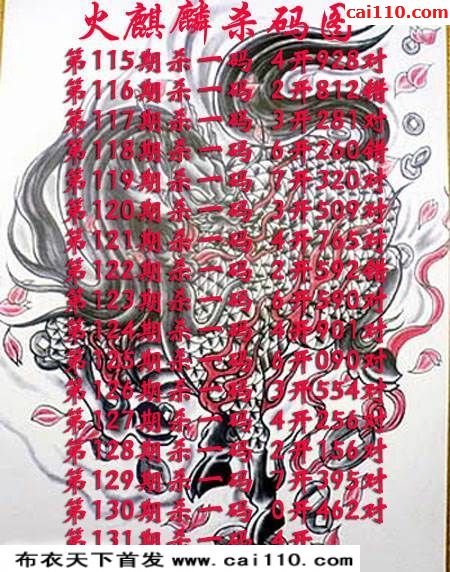 cai110.com
火麒麟杀码图
第115期杀一码 4开928对
第116期杀一码 2开812错
第117期杀一码 3开281对
第118期杀一码 6开260错
第119期杀一码 7开320对
第120期杀一码 3开509对
第121期杀一码 4开765对
第122期杀一码 2开592错
第123期杀一码 6开590对
第124期杀一码 4开901对
第125期杀一码 6开090对
第126期杀一码 3开554对
第127期杀一码 4开256对
第128期杀一码 2开156对
第129期杀一码 7开395对
第130期杀一码 0开462对
第131期杀一码 4开
布衣天下首发 www.cai110.com